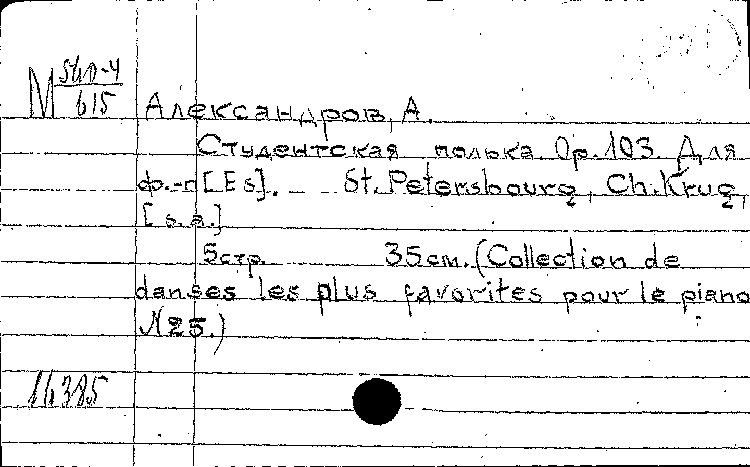 М 540-4
615
Александров, А.
Студенческая полька. Ор.103. Для
ф.-п [Es]. — St. Petersbourg, Ch. Krug,
[s.a.]
5стр. 35см. (Collection de
danses les plus favorites pour le piano
N25.)
16385